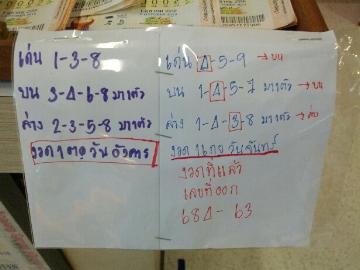 เด่น 1-3-8
บน 3-4-6-8 มาตัว
ล่าง 2-3-5-8 มาตัว
งวด 1 ตค วันอังคาร
เด่น 4-5-9 → บน
บน 1-4-5-7 มาตัว → บน
ล่าง 1-4-3-8 มาตัว → ล่าง
งวด 16 กย วันจันทร์
งวดที่แล้ว
เลขที่ออก
684 - 63